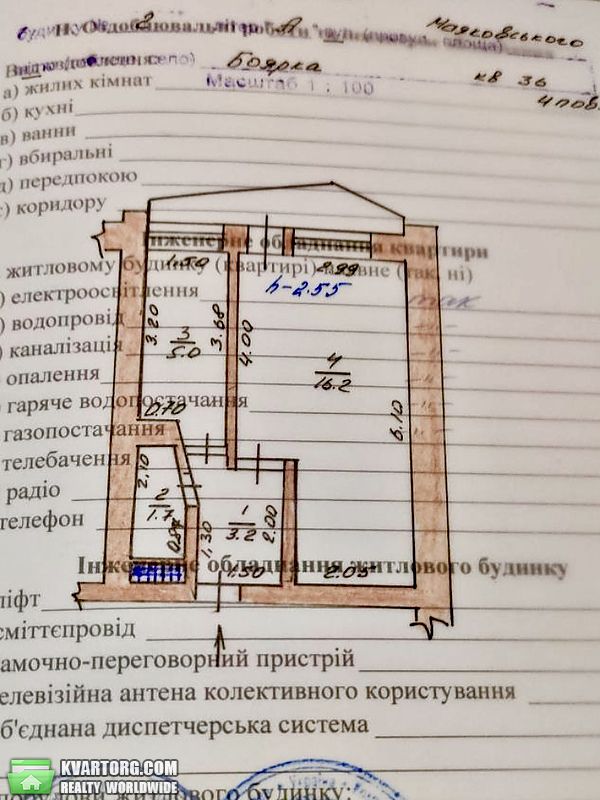 будинку 2 літер "А" вул. (провул., площа) Маяковського
ІІ. Оздоблювальні роботи
Боярка кв 36
а) жилих кімнат Масштаб 1 : 100 4 пов.
б) кухні
в) ванни
г) вбиральні
д) передпокою
е) коридору
Інженерне обладнання квартири
1.50 2.99
житловому будинку (квартирі) наявне (так, ні)
h-2.55
) електроосвітлення так
) водопровід 3.20 3/5.0 3.68 4.00
) каналізація 4/16.2
опалення
гаряче водопостачання 0.70 6.10
газопостачання
телебачення
радіо 2.10 2/1.7
телефон 0.87 1.30 1/3.2 2.00
Інженерне обладнання житлового будинку
1.50 2.05
ліфт
сміттєпровід
замочно-переговорний пристрій
телевізійна антена колективного користування
об'єднана диспетчерська система
KVARTORG.COM
REALTY WORLDWIDE
побудови житлового будинку: